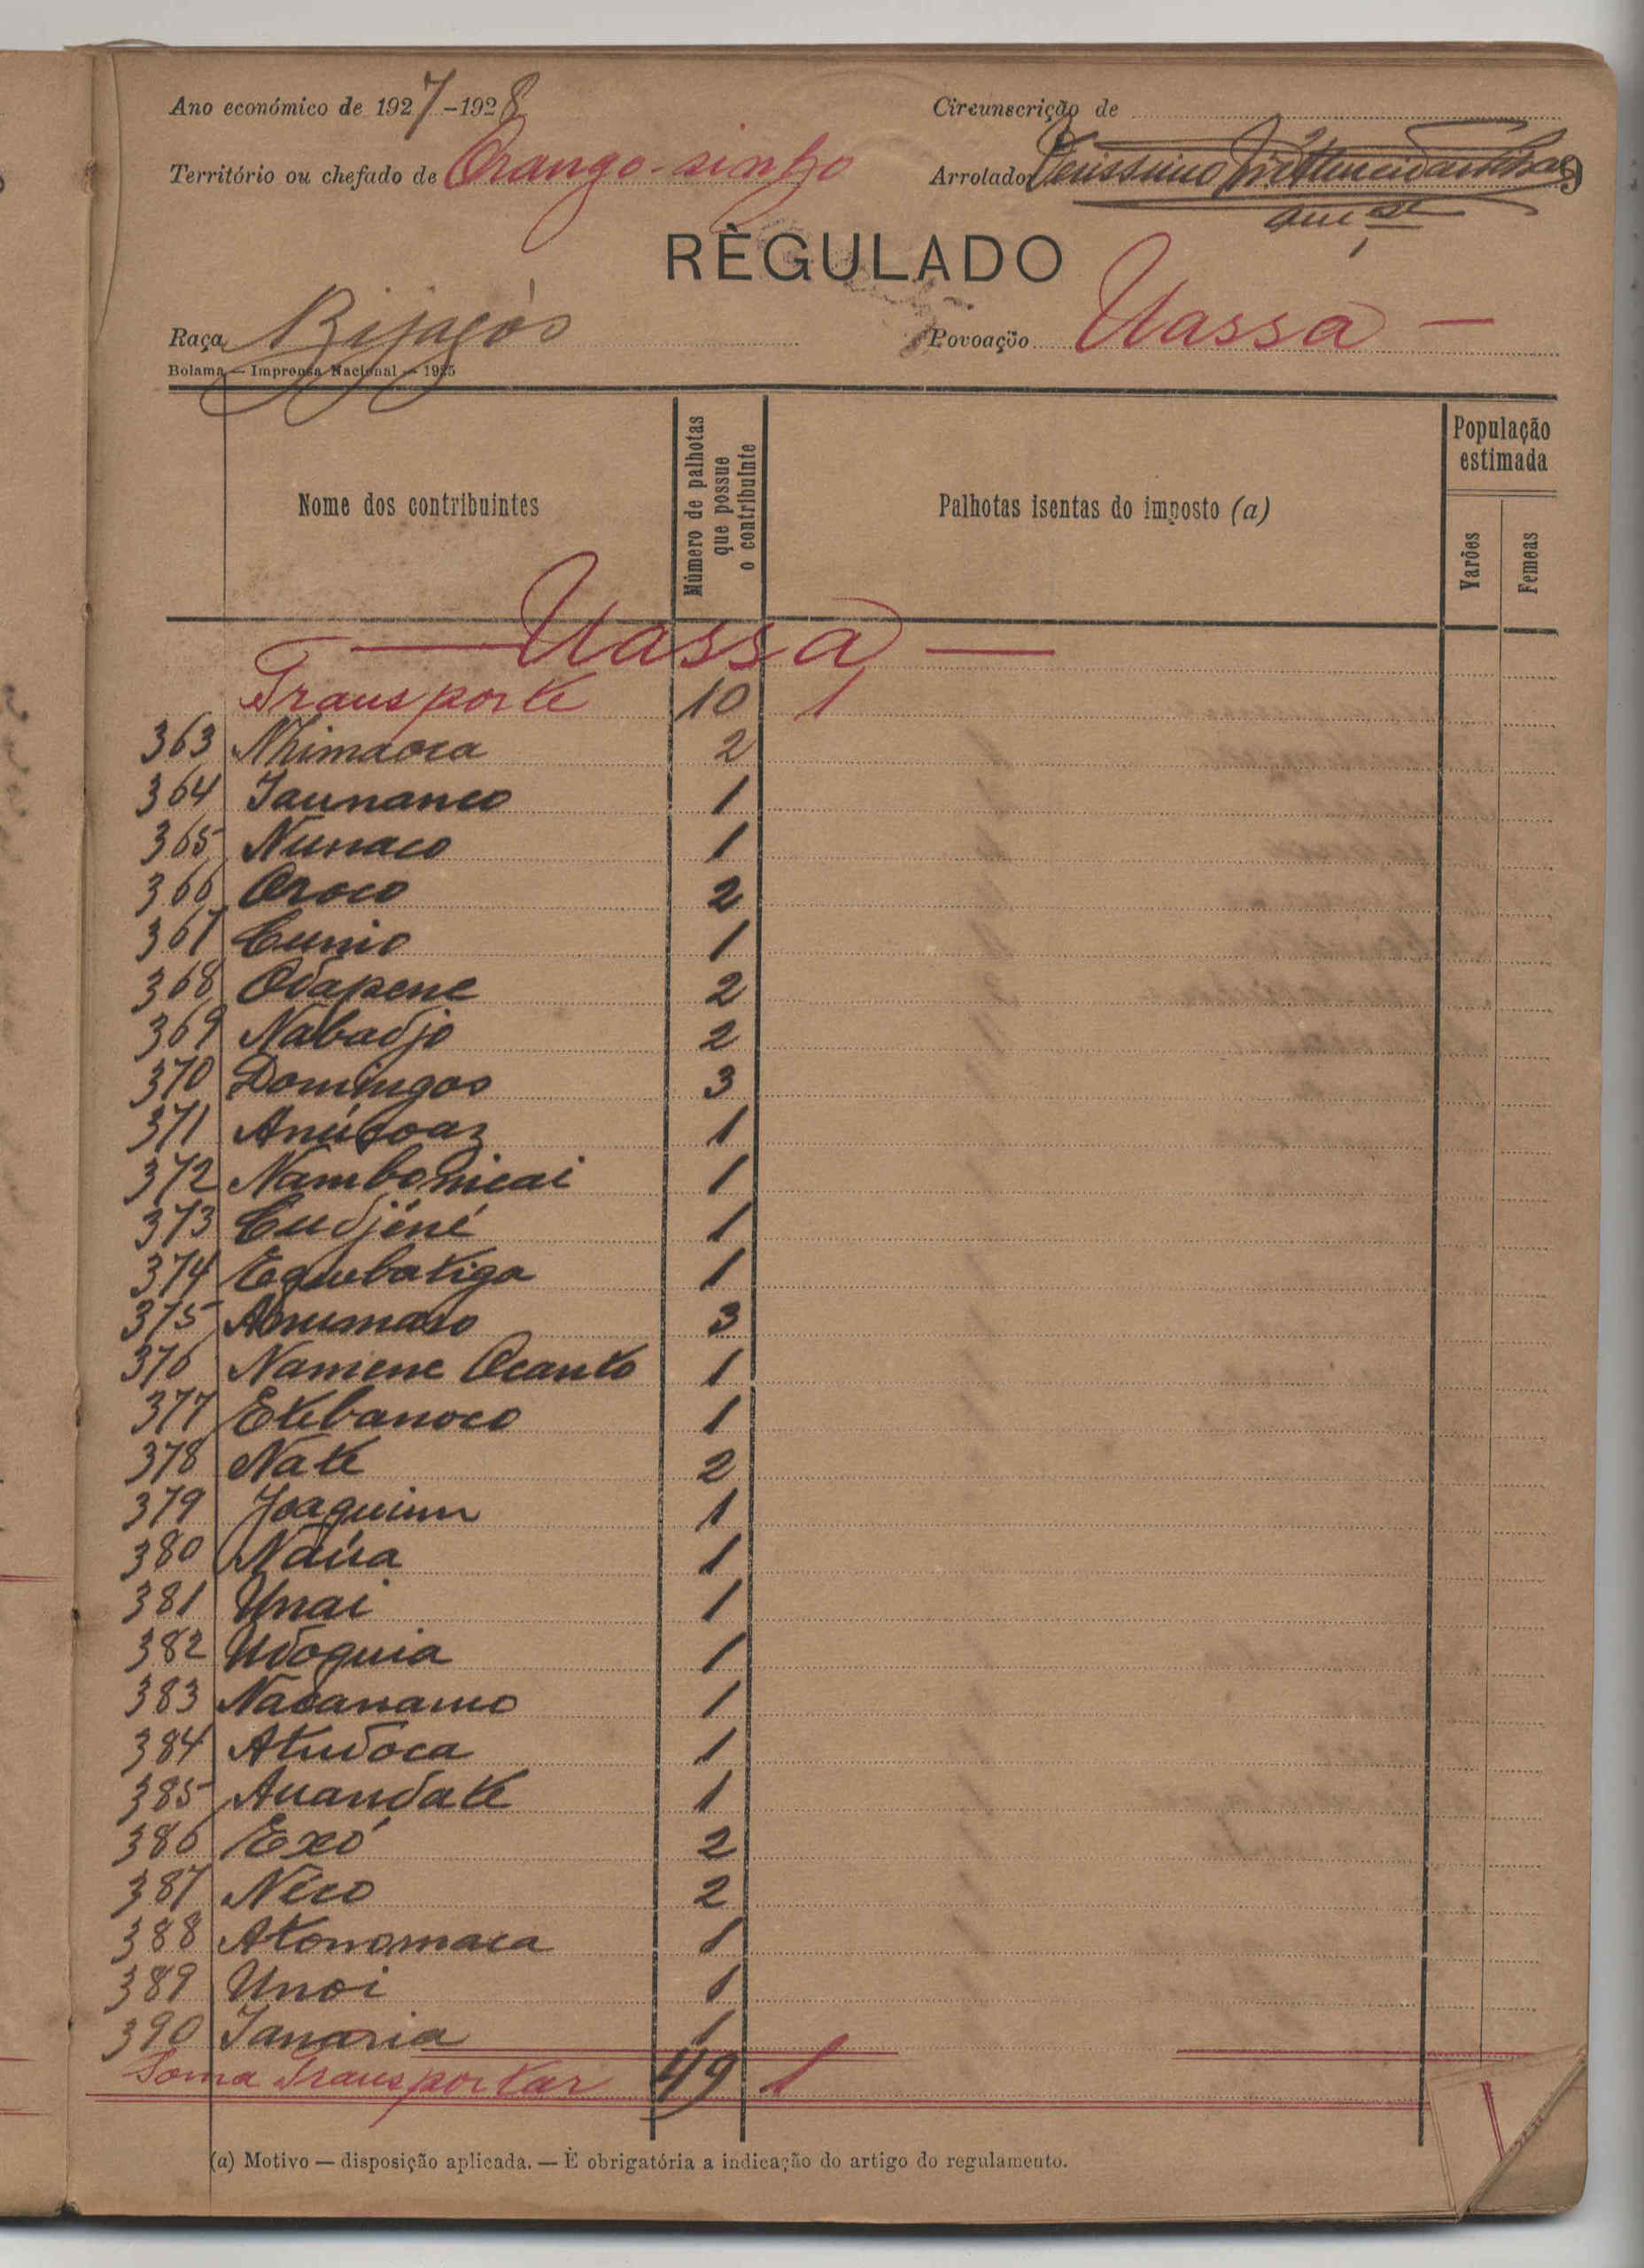 Ano económico de 1927-1928
Circunscrição de
Território ou chefado de Orango-sinho
Arrolador Verissimo
RÈGULADO
Raça Bijagós
Povoação Uassá —
Bolama — Imprensa Nacional — 1925
Nome dos contribuintes
Número de palhotas que possue o contribuinte
Palhotas isentas do imposto (a)
População estimada
Varões
Femeas
— Uassá —
Transporte 10 1
363 Nhimaoca 2
364 Jaunanco 1
365 Nunaco 1
366 Oroco 2
367 Cunio 1
368 Odapene 2
369 Nabadjo 2
370 Domingos 3
371 1
372 Nambonicai 1
373 Cudjéné 1
374 Equebatiga 1
375 3
376 Namene Ocanto 1
377 Etebanoco 1
378 Nate 2
379 Joaquim 1
380 Naúa 1
381 Unai 1
382 Udoquia 1
383 1
384 Atudoca 1
385 Auandate 1
386 Exó 2
387 Néco 2
388 Atonomaca 1
389 Unoi 1
390 Janaria 1
Soma Transportar 49 1
(a) Motivo — disposição aplicada. — È obrigatória a indicação do artigo do regulamento.